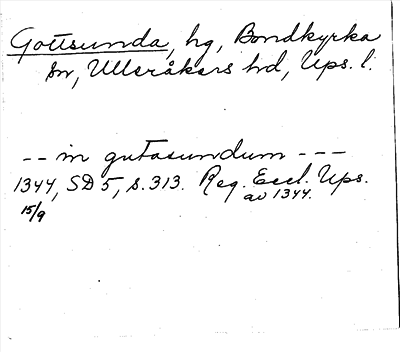 Gottsunda, hg, Bondkyrka
sn, Ulleråkers hd, Ups. l.
-- in gutasundum ---
1344, SD 5, s. 313. Reg. Eccl. Ups.
av 1344.
15/9